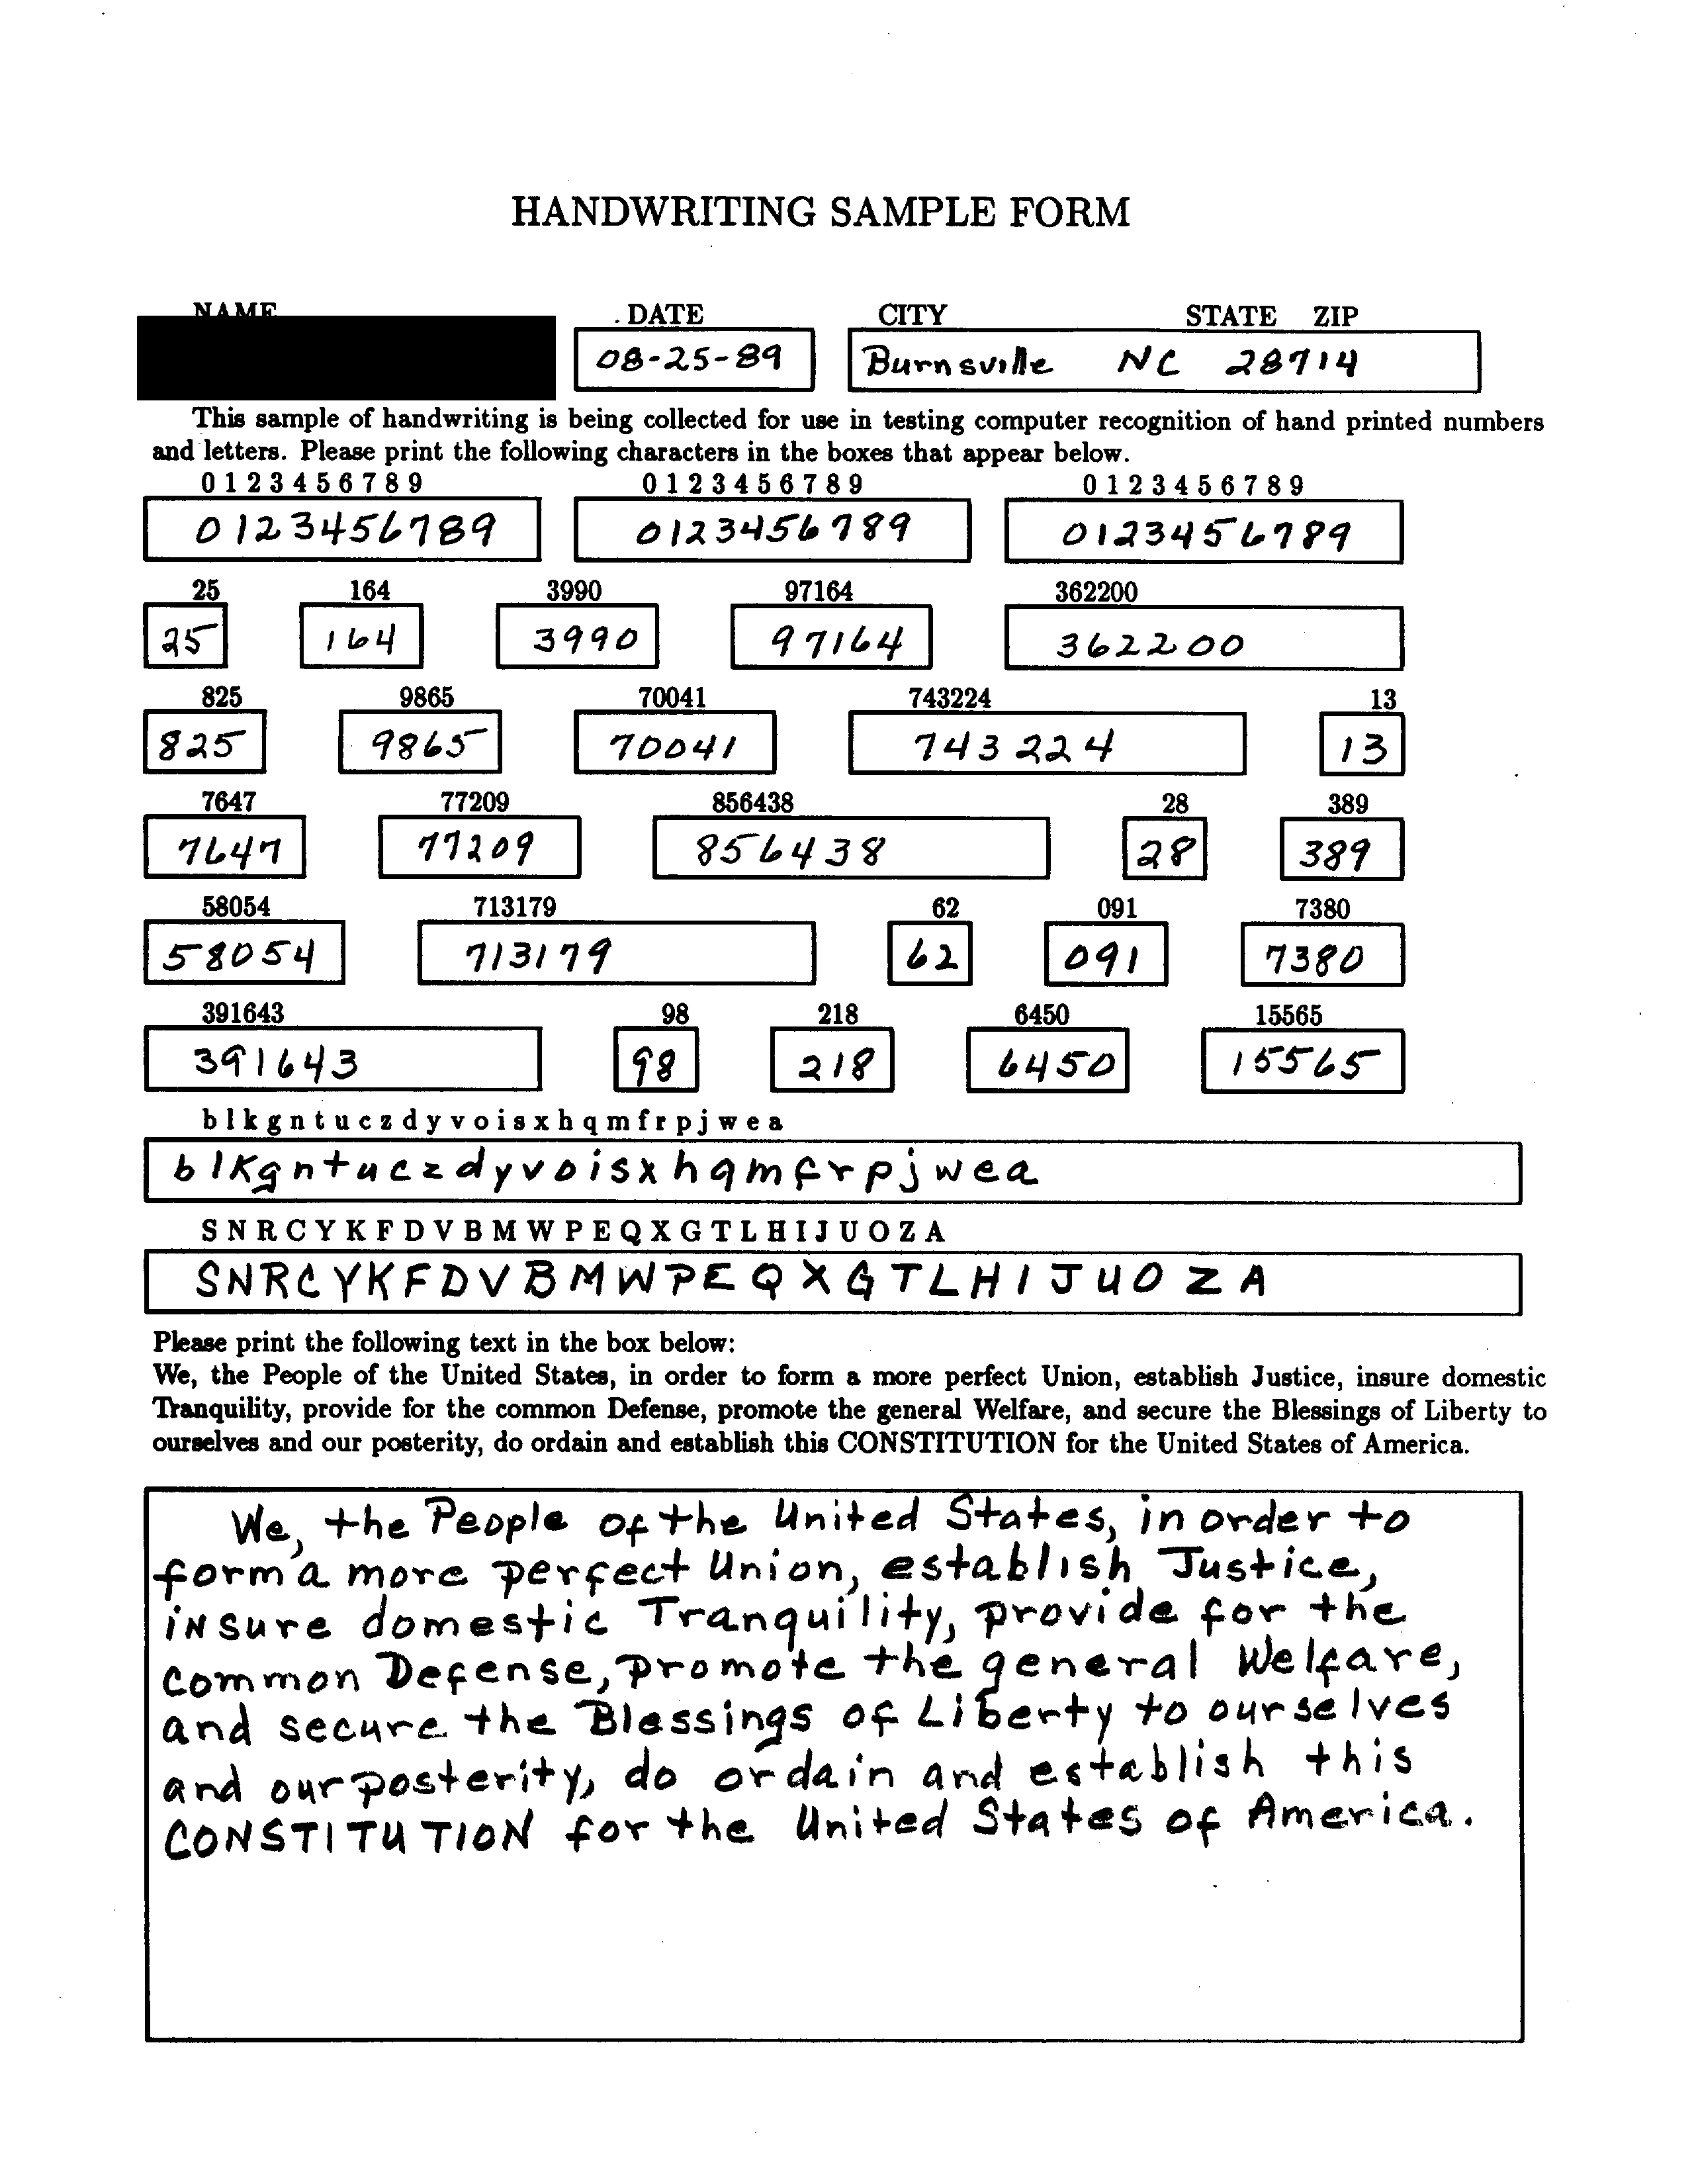 HANDWRITING SAMPLE FORM
NAME DATE CITY STATE ZIP
08-25-89 Burnsville NC 28714
This sample of handwriting is being collected for use in testing computer recognition of hand printed numbers
and letters. Please print the following characters in the boxes that appear below.
0 1 2 3 4 5 6 7 8 9 0 1 2 3 4 5 6 7 8 9 0 1 2 3 4 5 6 7 8 9
0123456789 0123456789 0123456789
25 164 3990 97164 362200
25 164 3990 97164 362200
825 9865 70041 743224 13
825 9865 70041 743224 13
7647 77209 856438 28 389
7647 77209 856438 28 389
58054 713179 62 091 7380
58054 713179 62 091 7380
391643 98 218 6450 15565
391643 98 218 6450 15565
b l k g n t u c z d y v o i s x h q m f r p j w e a
b l k g n t u c z d y v o i s x h q m f r p j w e a
S N R C Y K F D V B M W P E Q X G T L H I J U O Z A
S N R C Y K F D V B M W P E Q X G T L H I J U O Z A
Please print the following text in the box below:
We, the People of the United States, in order to form a more perfect Union, establish Justice, insure domestic
Tranquility, provide for the common Defense, promote the general Welfare, and secure the Blessings of Liberty to
ourselves and our posterity, do ordain and establish this CONSTITUTION for the United States of America.
We, the People of the United States, in order to
form a more perfect Union, establish Justice,
insure domestic Tranquility, provide for the
common Defense, promote the general Welfare,
and secure the Blessings of Liberty to ourselves
and our posterity, do ordain and establish this
CONSTITUTION for the United States of America.